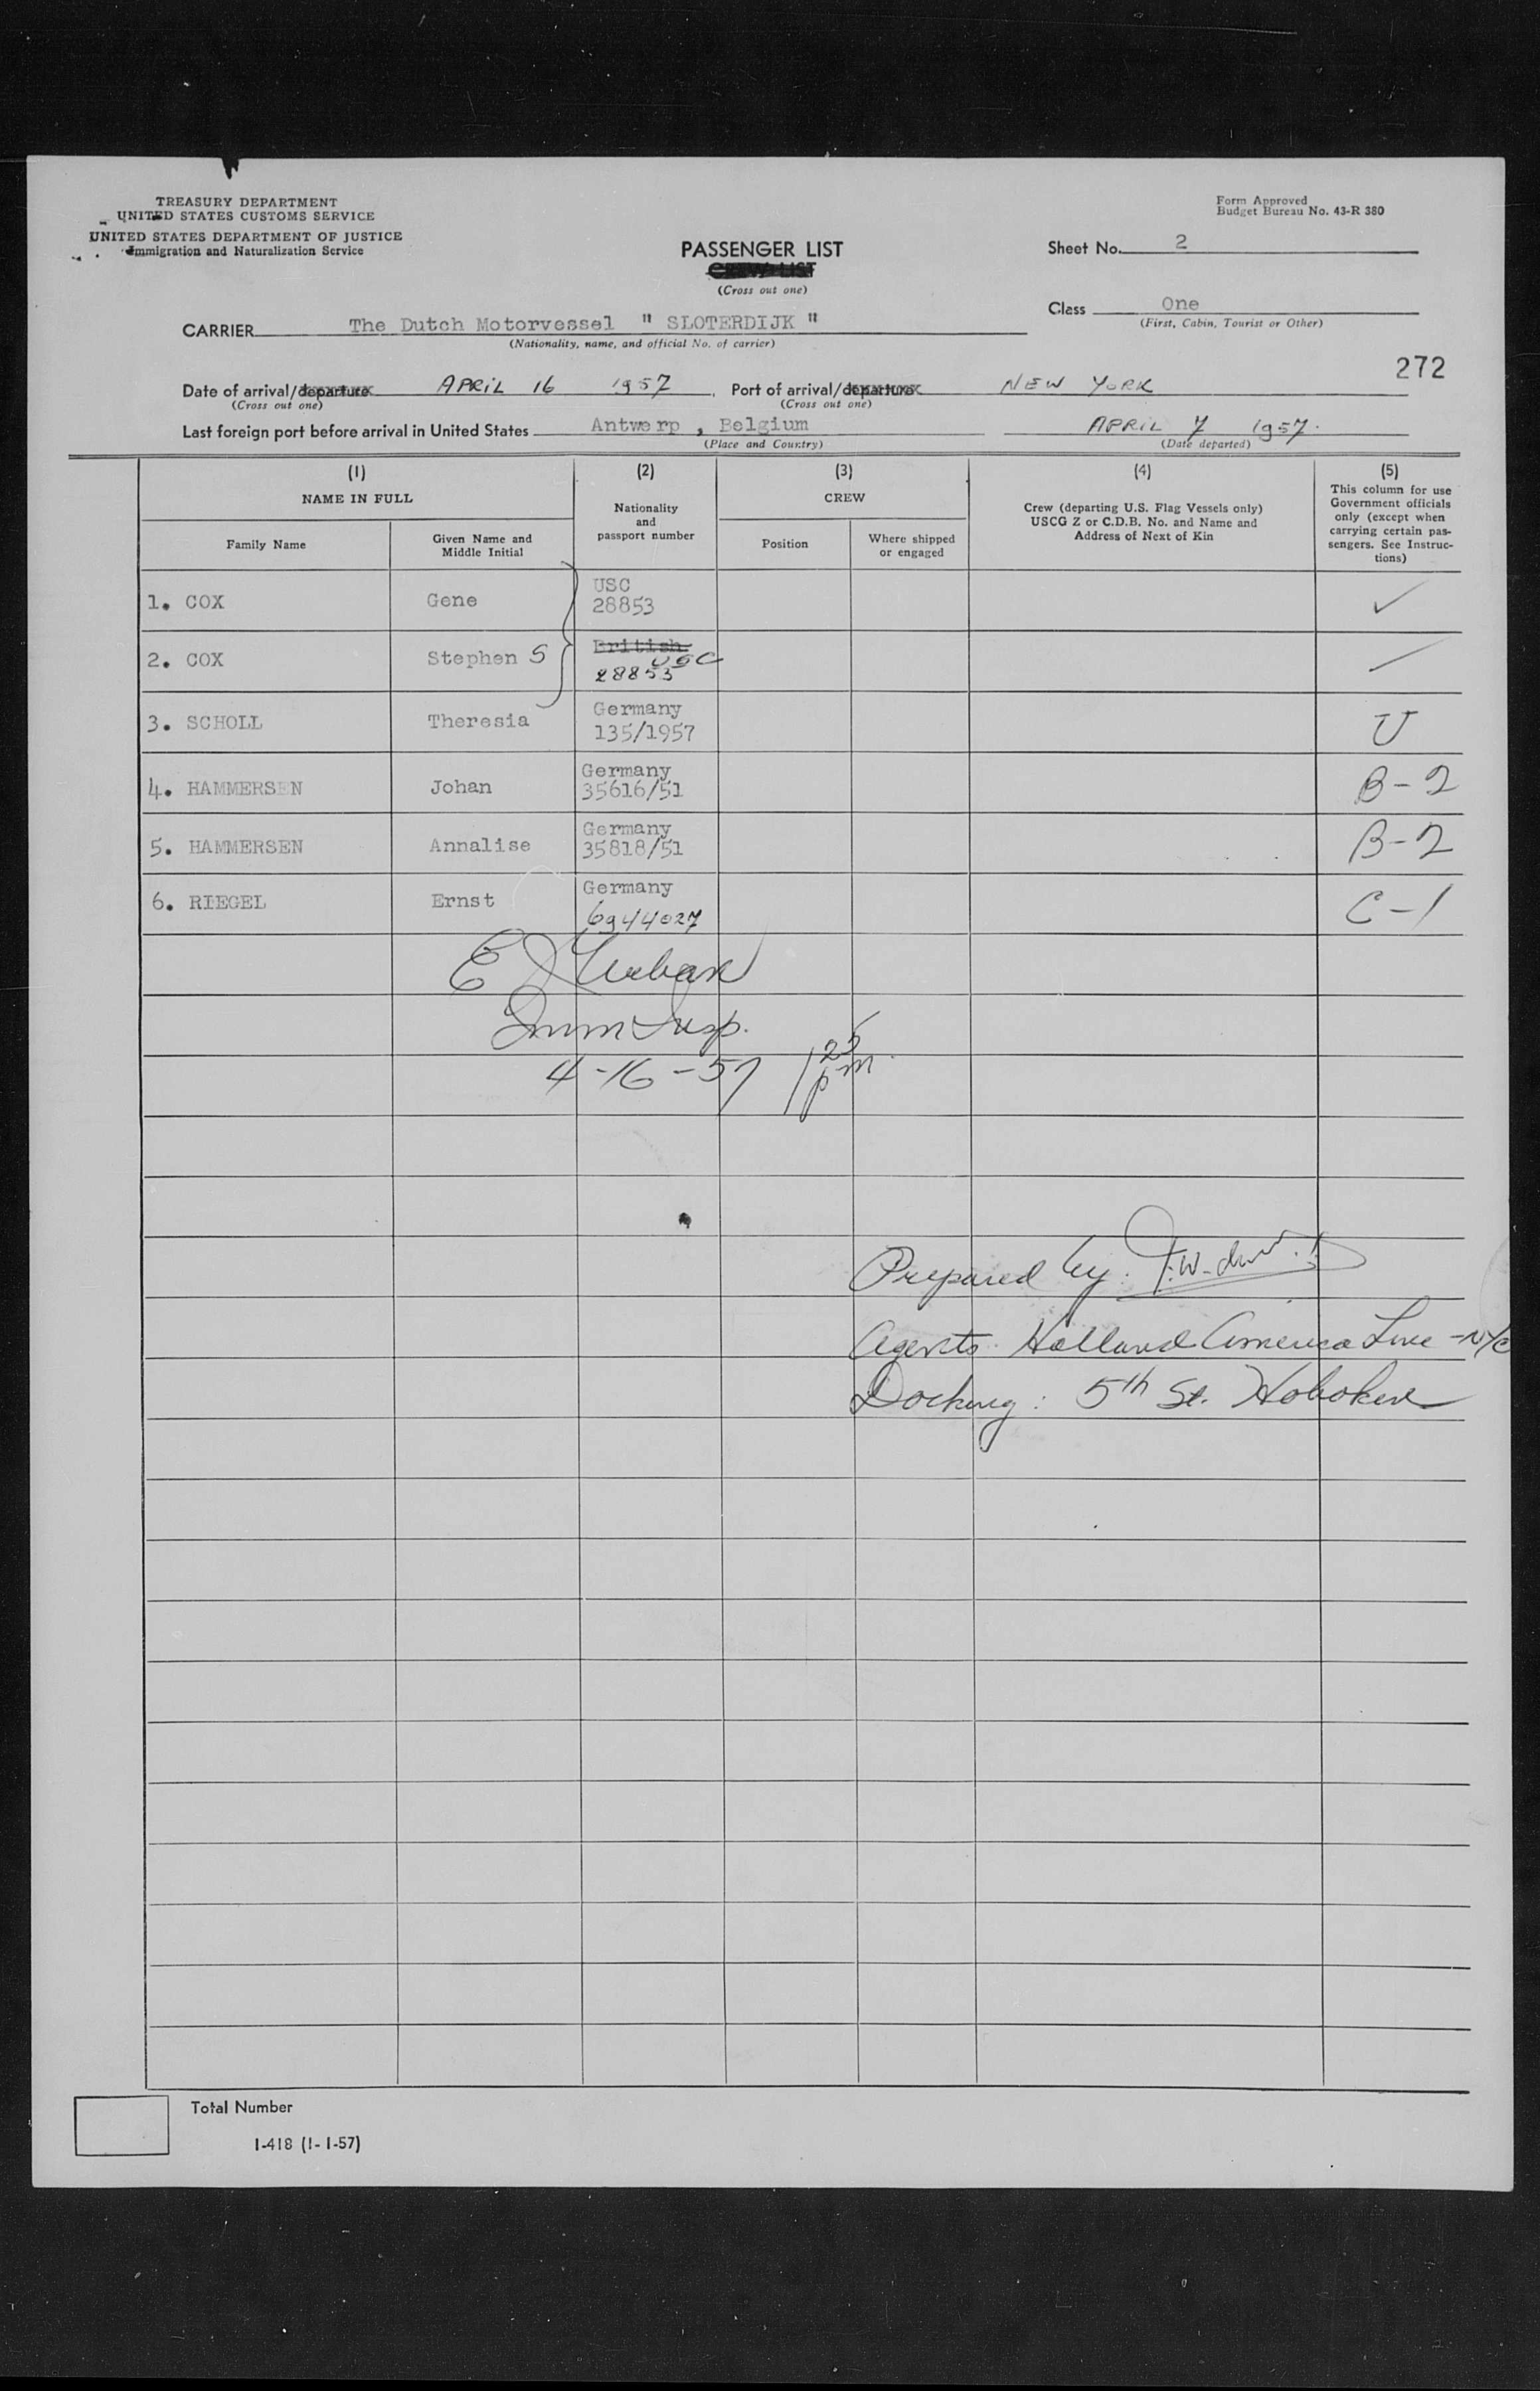 TREASURY DEPARTMENT
UNITED STATES CUSTOMS SERVICE
UNITED STATES DEPARTMENT OF JUSTICE
Immigration and Naturalization Service
Form Approved
Budget Bureau No. 43-R 380
PASSENGER LIST
CREW LIST
(Cross out one)
Sheet No. 2
Class One
(First, Cabin, Tourist or Other)
CARRIER The Dutch Motorvessel " SLOTERDIJK "
(Nationality, name, and official No. of carrier)
272
Date of arrival/departure APRIL 16 1957, Port of arrival/departure NEW YORK
(Cross out one) (Cross out one)
Last foreign port before arrival in United States Antwerp , Belgium APRIL 7 1957.
(Place and Country) (Date departed)
(1) (2) (3) (4) (5)
NAME IN FULL
Family Name
Given Name and
Middle Initial
Nationality
and
passport number
CREW
Position
Where shipped
or engaged
Crew (departing U.S. Flag Vessels only)
USCG Z or C.D.B. No. and Name and
Address of Next of Kin
This column for use
Government officials
only (except when
carrying certain pas-
sengers. See Instruc-
tions)
1. COX Gene USC
28853 ✓
2. COX Stephen S British USC
28853
3. SCHOLL Theresia Germany
135/1957 U
4. HAMMERSEN Johan Germany
35616/51 B-2
5. HAMMERSEN Annalise Germany
35818/51 B-2
6. RIEGEL Ernst Germany
6944027 C-1
E
Imm Insp.
4-16-57 1 25 pm.
Prepared by:
Agents Holland America Line - NYC
Docking: 5th St. Hoboken
Total Number
I-418 (1-1-57)